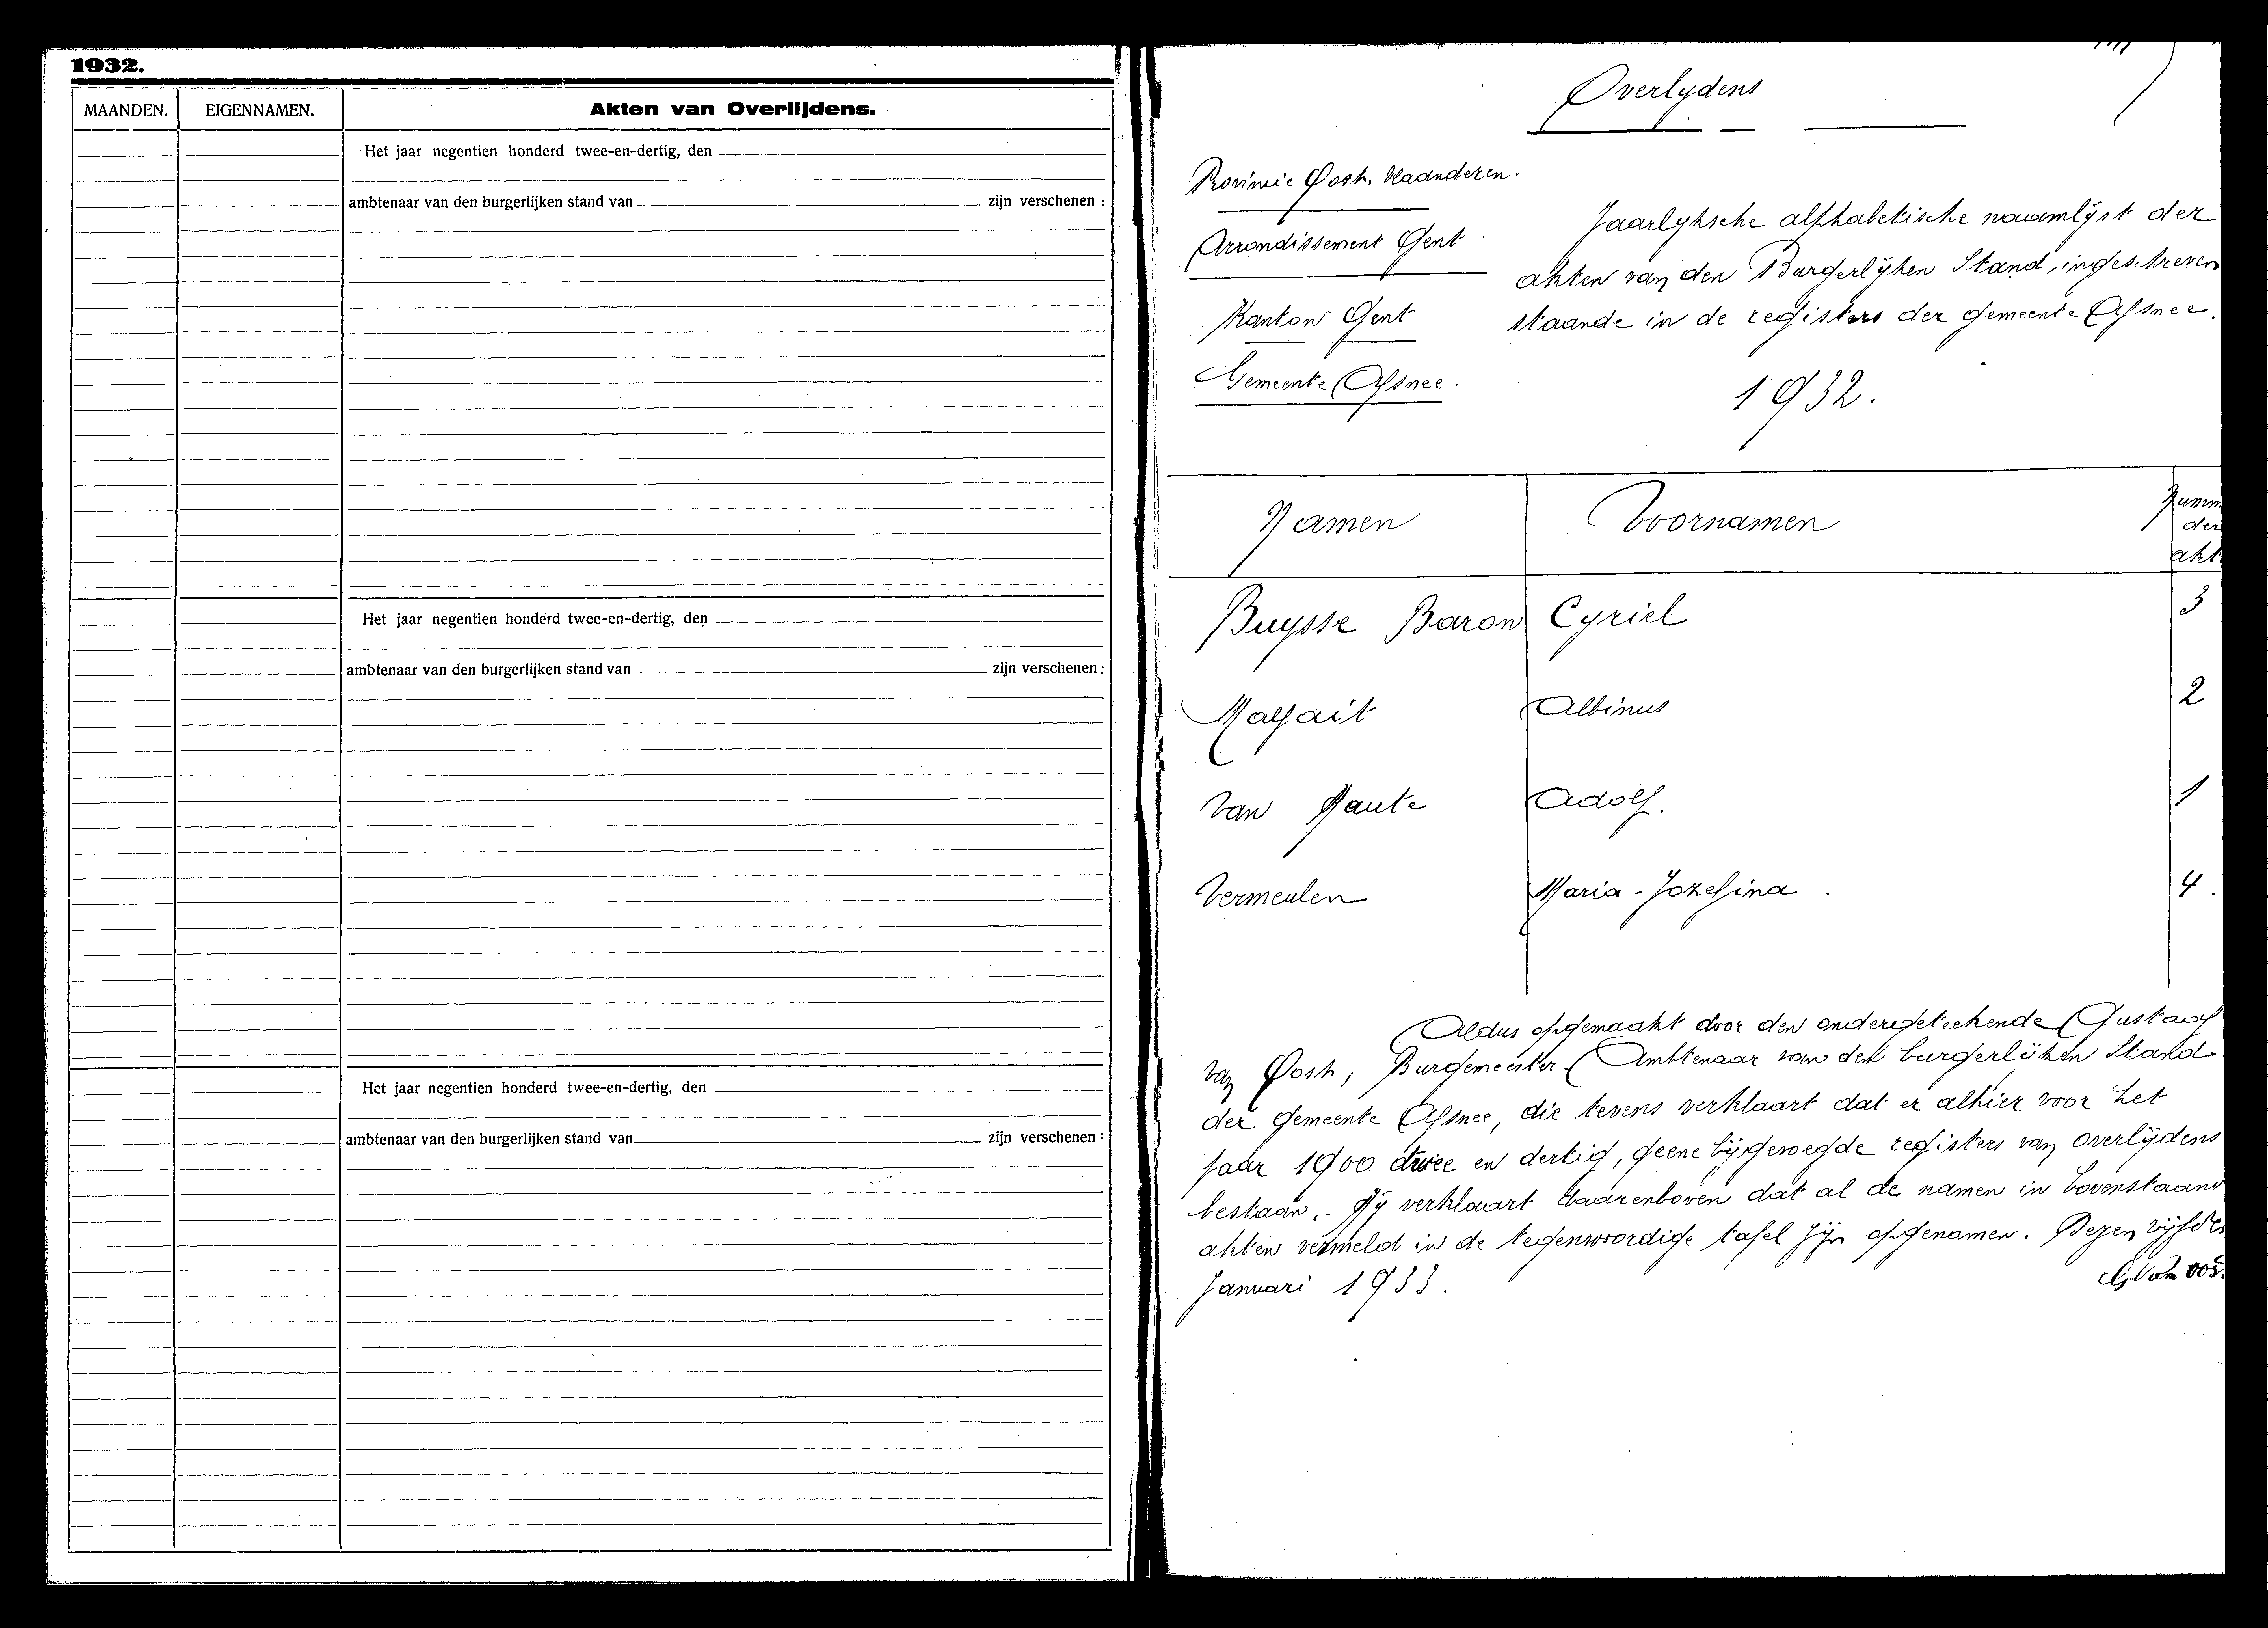 1932.
MAANDEN. EIGENNAMEN. Akten van Overlijdens.
Het jaar negentien honderd twee-en-dertig, den
ambtenaar van den burgerlijken stand van zijn verschenen :
Het jaar negentien honderd twee-en-dertig, den
ambtenaar van den burgerlijken stand van zijn verschenen :
Het jaar negentien honderd twee-en-dertig, den
ambtenaar van den burgerlijken stand van zijn verschenen :
Overlydens
Provincie Oost. Vlaanderen.
Arrondissement Gent
Kanton Gent
Gemeente Afsnee.
Jaarlyksche alphabetische naamlijst der
akten van den Burgerlijken Stand, ingeschreven
staande in de registers der gemeente Afsnee.
1932.
Namen Voornamen Numm
der
akt
Buysse Baron Cyriel 3
Malfait Albinus 2
Van Haute Adolf. 1
Vermeulen Maria-Jozefina 4.
Aldus opgemaakt door den ondergeteekende Gustaaf
Van Oost, Burgemeester Ambtenaar van den burgerlijken Stand
der gemeente Afsnee, die tevens verklaart dat er alhier voor het
jaar 1900 twee en dertig, geene bijgevoegde registers van overlijdens
bestaan.- Hij verklaart daarenboven dat al de namen in bovenstaand
akten vermeld in de tegenwoordige tafel zijn opgenomen. Dezen vijfden
Januari 1933.
G. Van oos